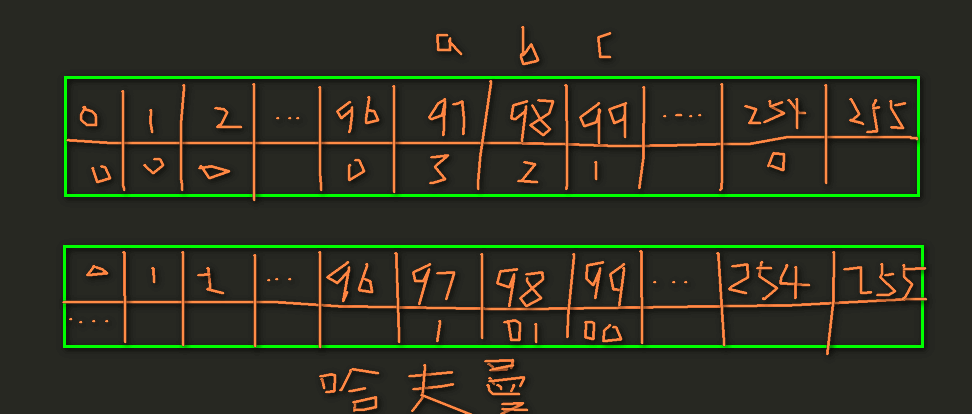 a b c
0 1 2 ... 96 97 98 99 .... 254 255
0 0 0 0 3 2 1 0
0 1 2 ... 96 97 98 99 ... 254 255
.... 1 01 00
哈夫曼